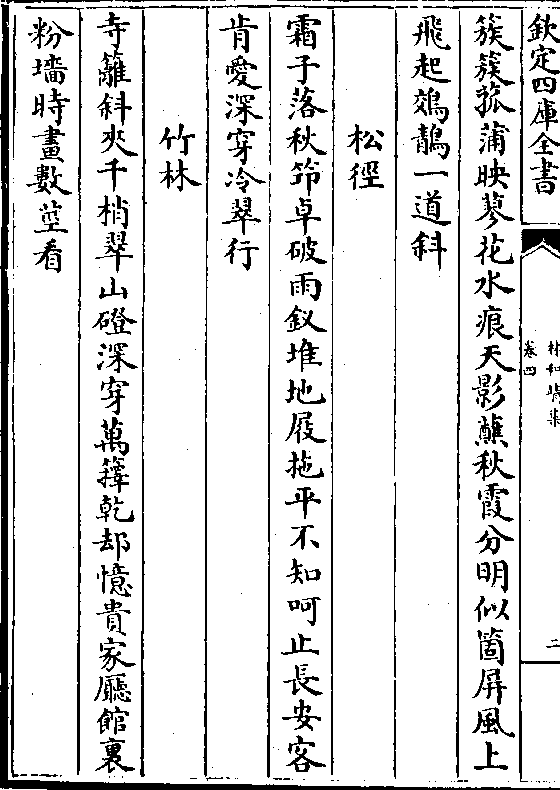 欽定四庫全書
林和靖集
卷四
二
簇簇菰蒲映蓼花水痕天影蘸秋霞分明似箇屏風上
飛起鵁鶄一道斜
松徑
霜子落秋笻卓破雨釵堆地屐拖平不知呵止長安客
肯愛深穿冷翠行
竹林
寺籬斜夾千梢翠山磴深穿萬籜乾却憶貴家廳館裏
粉墻時畫數莖看